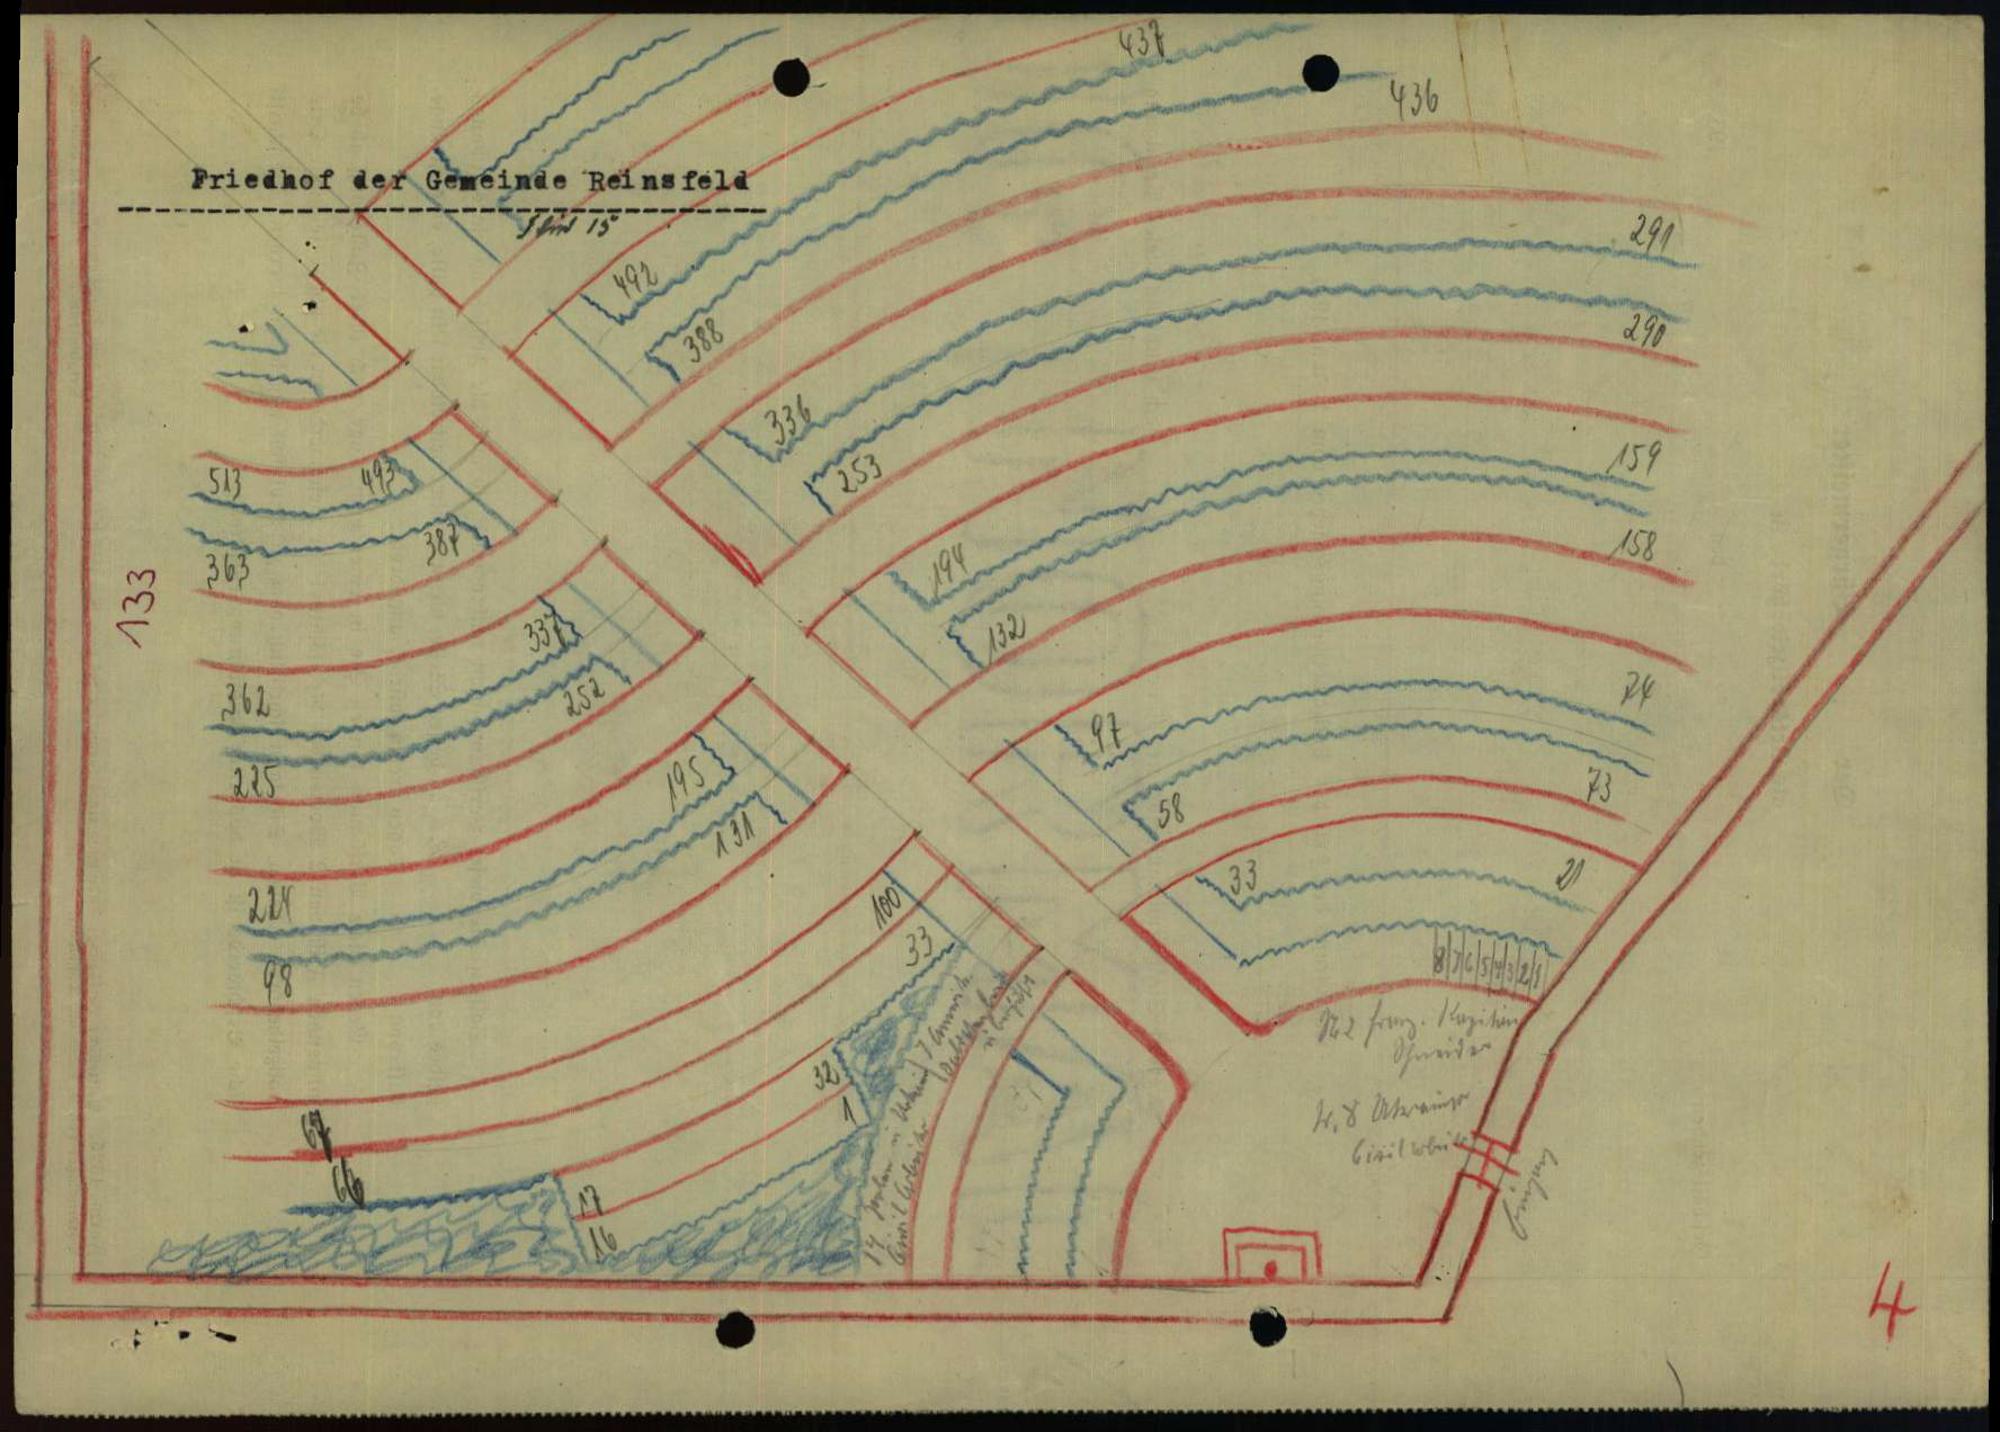 437
436
Friedhof der Gemeinde Reinsfeld
15
291
492
388
290
336
253
513
493
159
363
387
158
133
194
132
337
362
252
74
225
97
195
73
58
131
224
33
21
100
98
33
8 7 6 5 4 3 2 1
No 2 franz. Kapitän
Schneider
32
1
67
66
17
16
14 Polen u
Civil Arbeiter
No. 8 Ukrainer
Civilarbeiter
Eingang
4